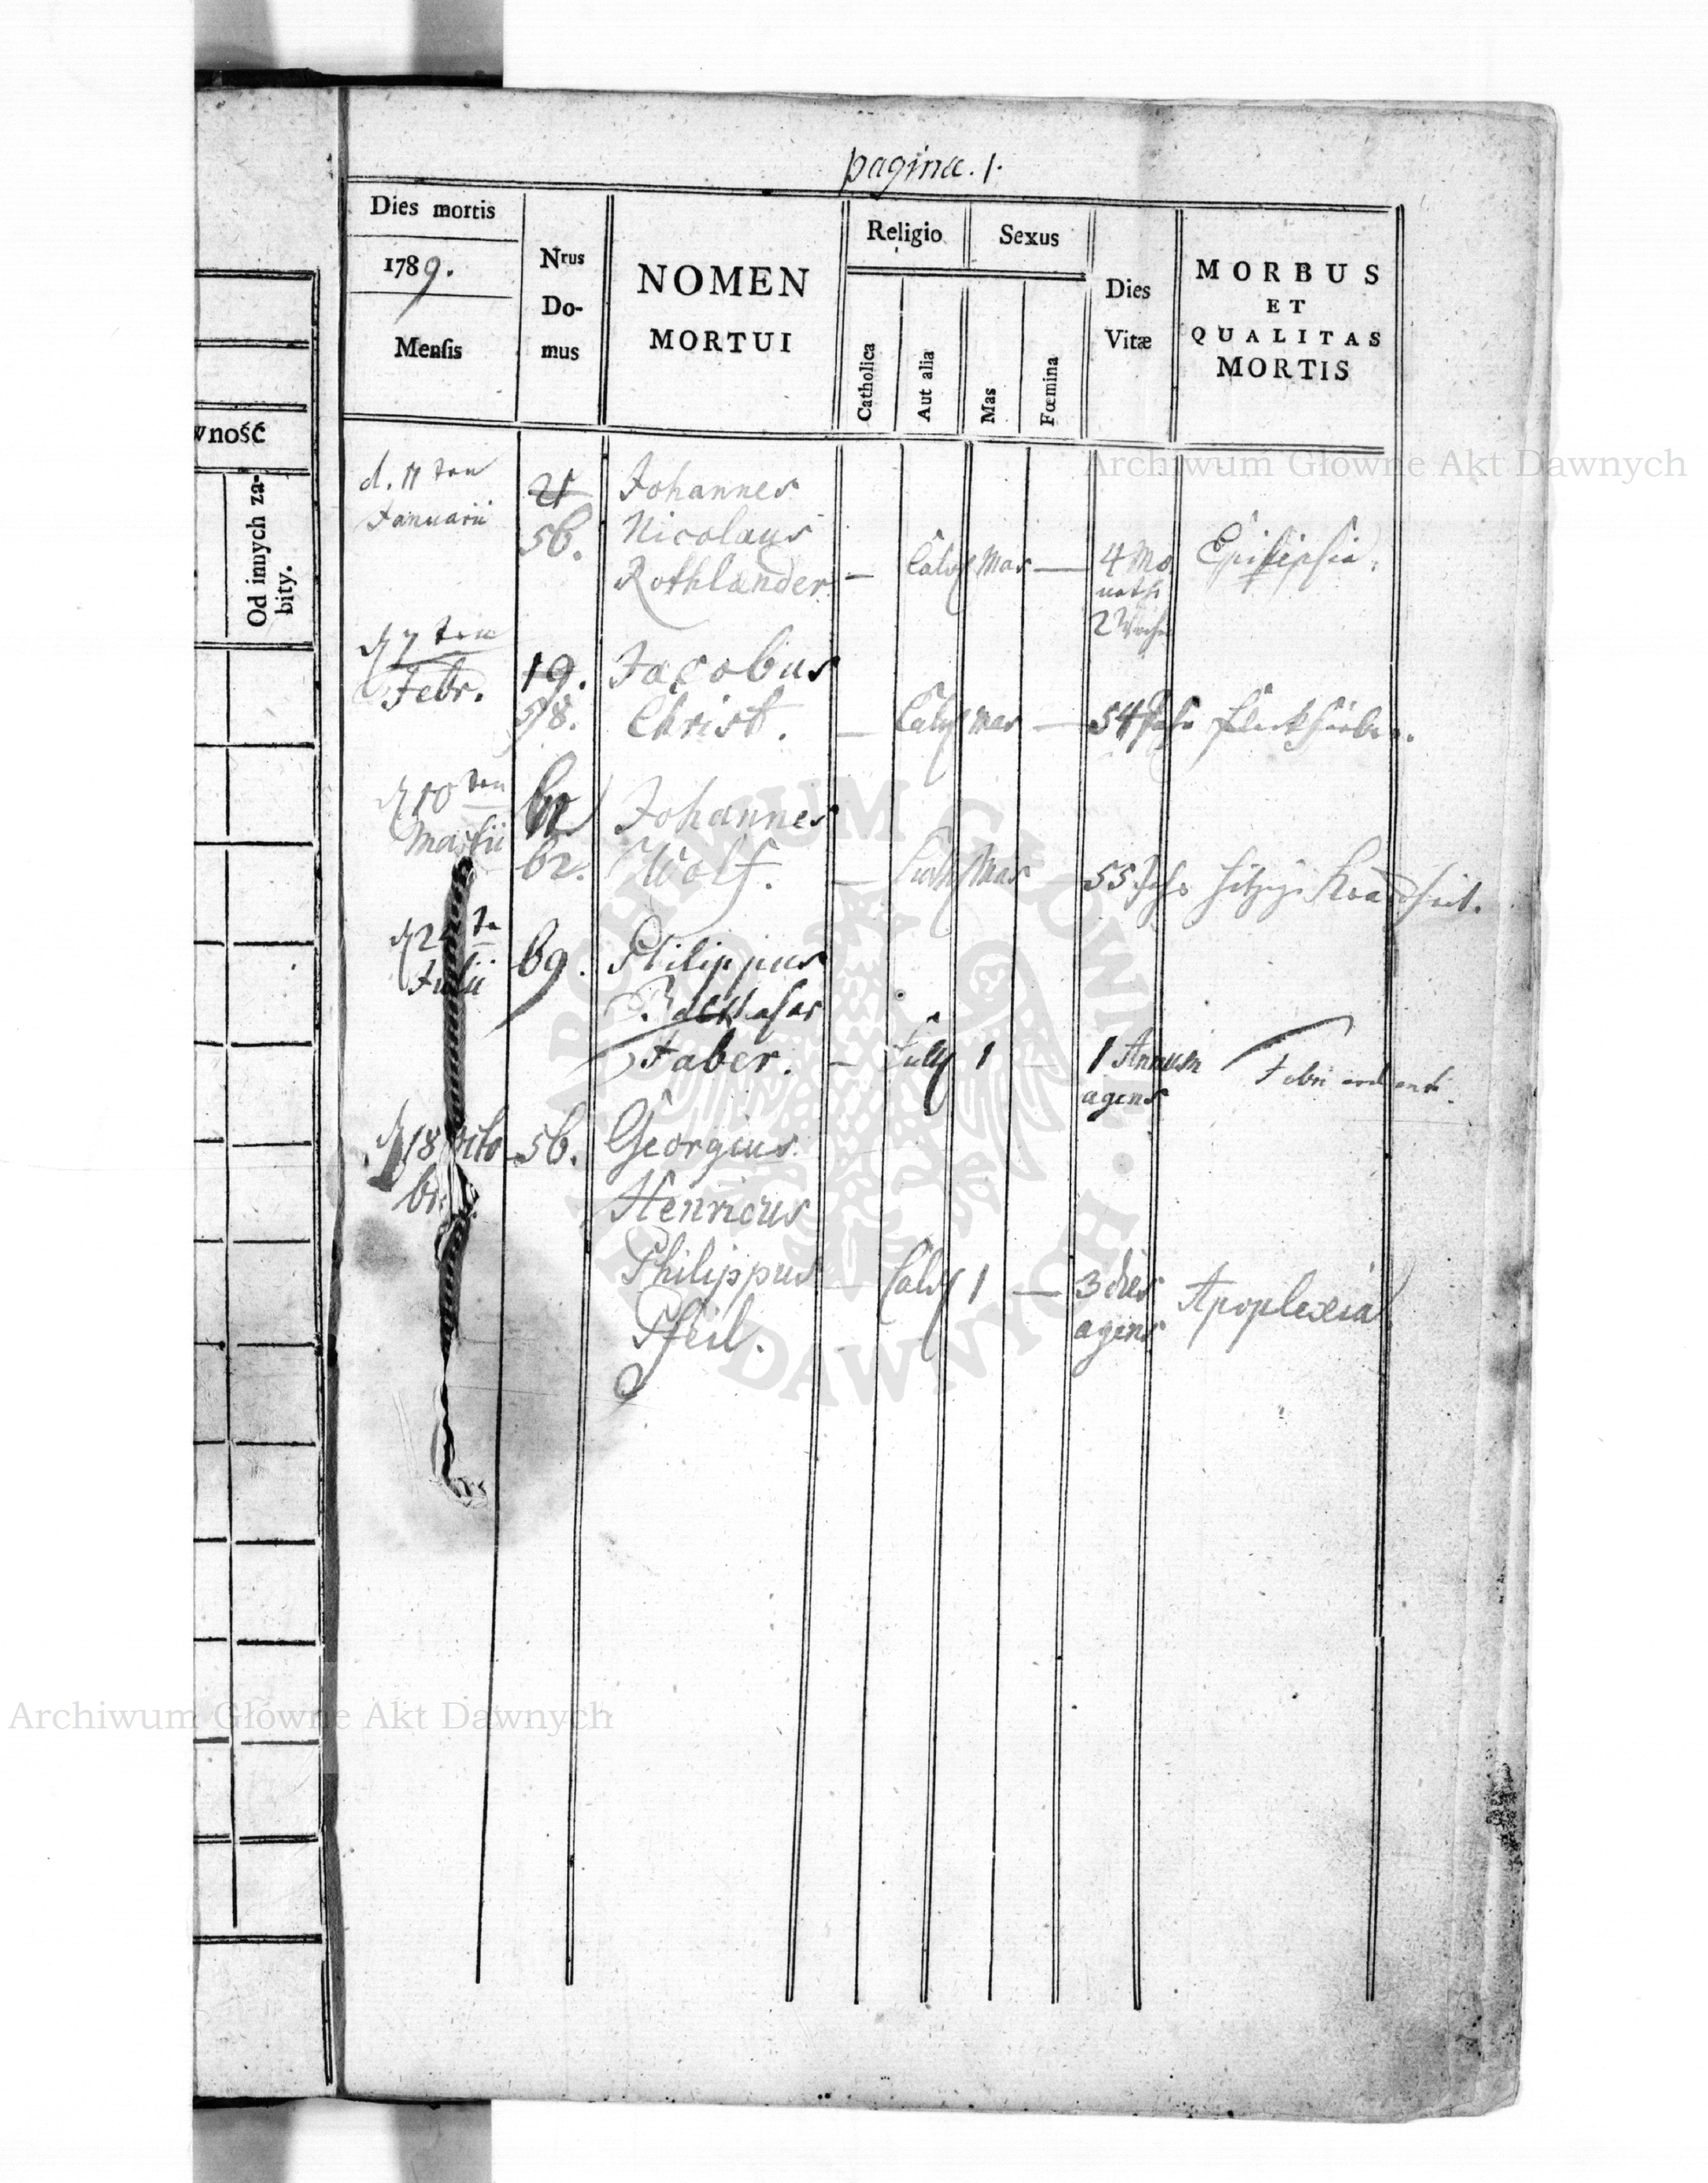 pagina. 1.
Dies mortis
1789.
Mensis
Nrus
Do-
mus
NOMEN
MORTUI
Religio
Catholica
Aut alia
Sexus
Mas
Fœmina
Dies
Vitæ
MORBUS
ET
QUALITAS
MORTIS
wność
Od innych za-
bity.
d. 11 ten
Januarii
21
56.
Johannes
Nicolaus
Rothlander
Calv
Mas
4 Mo
nath
2 Woche
Epilepsia.
d 7 ten
Febr.
19.
58.
Jacobus
Christ.
Calv
mas
54 Jahr
d 10 ten
Martii
62.
Johannes
Wolf.
Luth
Mas
55 Jahr
hitzige Krankheit.
Julii
69.
Philippus
Balthasar
Faber.
1
1 Annum
agens
Febri
d 18 Octo
br.
56.
Georgius
Henricus
Philippus
Pfeil.
Calv
1
3 dies
agens
Apoplexia
Archiwum Główne Akt Dawnych
ARCHIWUM GŁÓWNE AKT DAWNYCH
Archiwum Główne Akt Dawnych